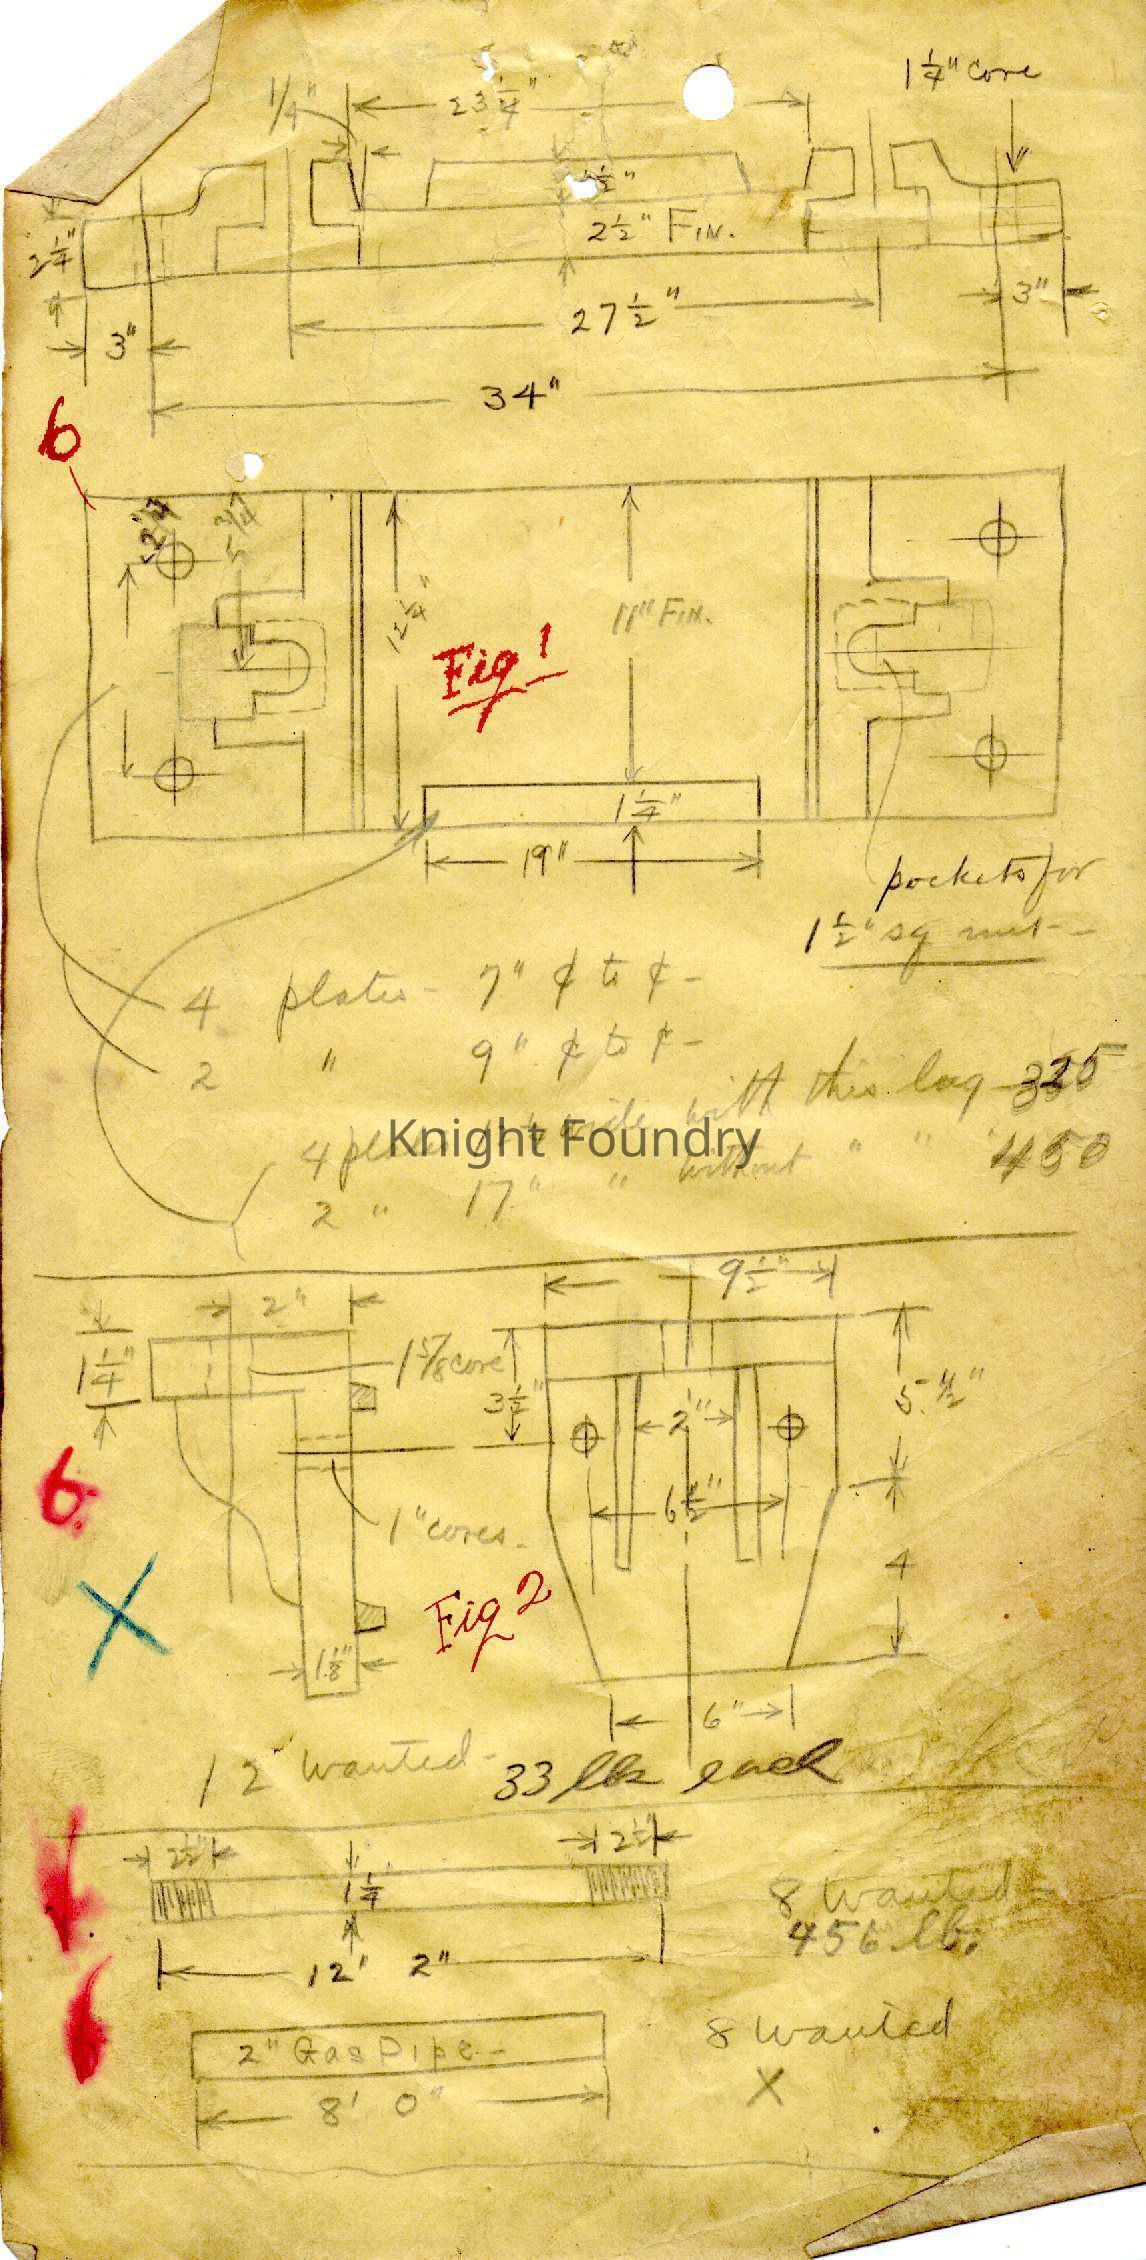 1/4"
23 1/4"
1 1/4" core
2 1/4"
2 1/2" FIN.
3"
27 1/2"
3"
34"
6
12 1/4"
11" FIN.
Fig 1
1 1/4"
19"
pockets for
1 1/2" sq nut -
4 plates - 7" ¢ to ¢ -
2 " 9" ¢ to ¢ -
4 plates wide with this lug 325
2 " 17" " without " " 450
Knight Foundry
9 1/2"
2"
1 1/4"
1 5/8 core
3 1/2"
5 1/2"
2"
6 1/2"
6
1" cores.
4
Fig 2
1 1/8"
6"
12 wanted - 33 lbs each
2 1/2"
2 1/2"
1 1/4
8 wanted -
456 lb.
12' 2"
6
2" Gas Pipe -
8 wanted
X
8' 0"